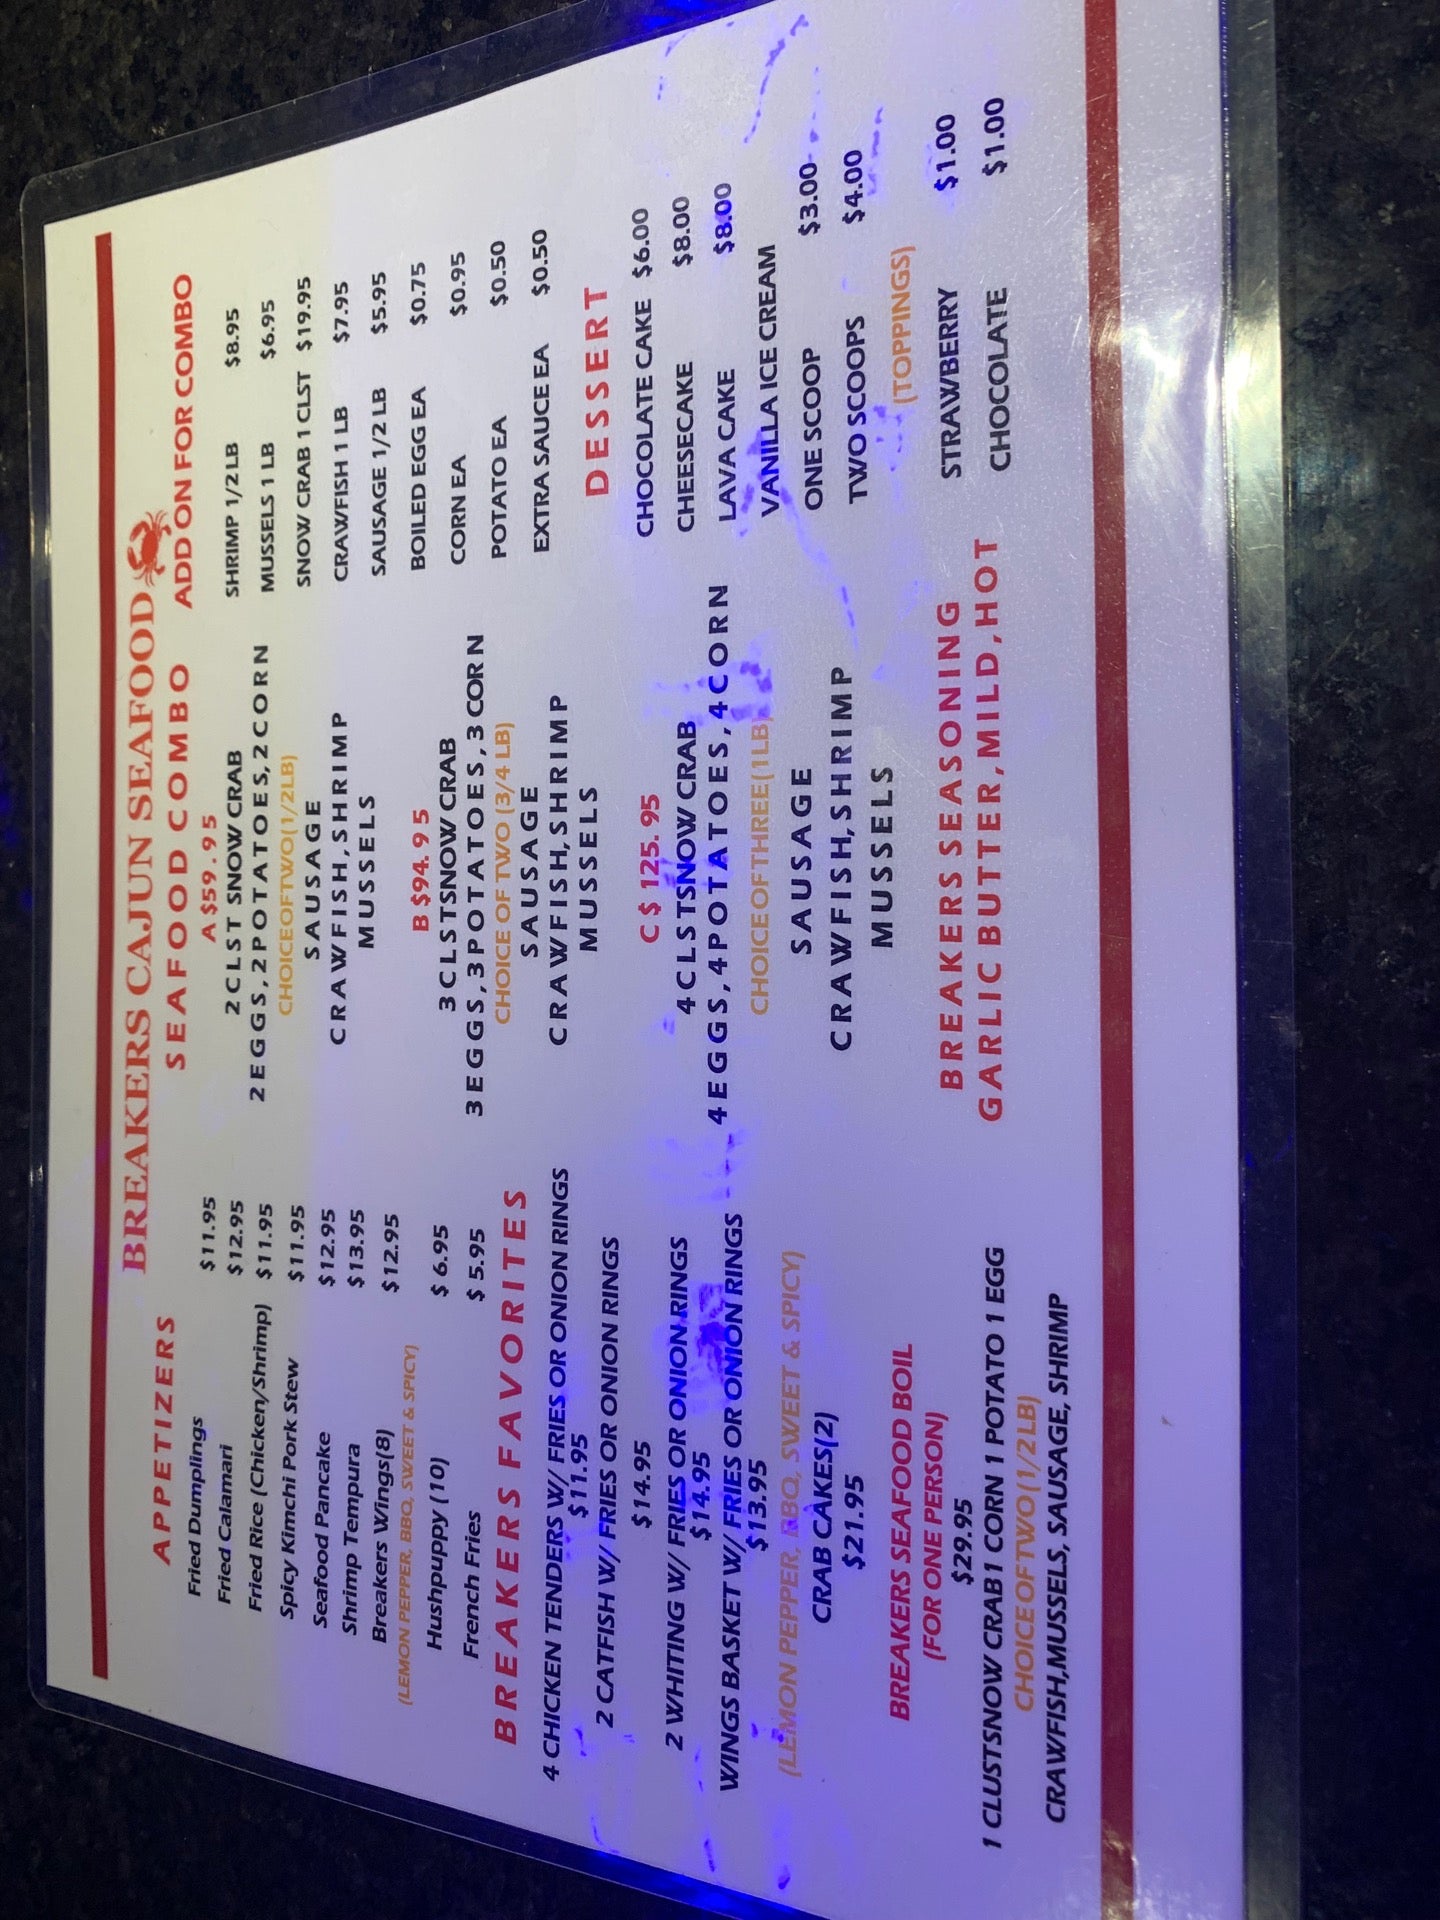 BREAKERS CAJUN SEAFOOD
APPETIZERS
Fried Dumplings $11.95
Fried Calamari $12.95
Fried Rice (Chicken/Shrimp) $11.95
Spicy Kimchi Pork Stew $11.95
Seafood Pancake $12.95
Shrimp Tempura $13.95
Breakers Wings(8) $12.95
(LEMON PEPPER, BBQ, SWEET & SPICY)
Hushpuppy (10) $ 6.95
French Fries $ 5.95
BREAKERS FAVORITES
4 CHICKEN TENDERS W/ FRIES OR ONION RINGS
$11.95
2 CATFISH W/ FRIES OR ONION RINGS
$14.95
2 WHITING W/ FRIES OR ONION RINGS
$14.95
WINGS BASKET W/ FRIES OR ONION RINGS
$13.95
(LEMON PEPPER, BBQ, SWEET & SPICY)
CRAB CAKES(2)
$21.95
BREAKERS SEAFOOD BOIL
(FOR ONE PERSON)
$29.95
1 CLUSTSNOW CRAB1 CORN 1 POTATO 1 EGG
CHOICE OF TWO(1/2LB)
CRAWFISH,MUSSELS, SAUSAGE, SHRIMP
SEAFOOD COMBO
A $59.95
2 CLST SNOW CRAB
2 EGGS, 2 POTATOES, 2 CORN
CHOICE OF TWO(1/2LB)
SAUSAGE
CRAWFISH, SHRIMP
MUSSELS
B $94.95
3 CLSTSNOW CRAB
3 EGGS, 3 POTATOES, 3 CORN
CHOICE OF TWO (3/4 LB)
SAUSAGE
CRAWFISH, SHRIMP
MUSSELS
C $ 125.95
4 CLSTSNOW CRAB
4 EGGS, 4 POTATOES, 4 CORN
CHOICE OF THREE(1LB)
SAUSAGE
CRAWFISH, SHRIMP
MUSSELS
BREAKERS SEASONING
GARLIC BUTTER, MILD, HOT
ADD ON FOR COMBO
SHRIMP 1/2LB $8.95
MUSSELS 1 LB $6.95
SNOW CRAB 1 CLST $19.95
CRAWFISH 1 LB $7.95
SAUSAGE 1/2 LB $5.95
BOILED EGG EA $0.75
CORN EA $0.95
POTATO EA $0.50
EXTRA SAUCE EA $0.50
DESSERT
CHOCOLATE CAKE $6.00
CHEESECAKE $8.00
LAVA CAKE $8.00
VANILLA ICE CREAM
ONE SCOOP $3.00
TWO SCOOPS $4.00
(TOPPINGS)
STRAWBERRY $1.00
CHOCOLATE $1.00